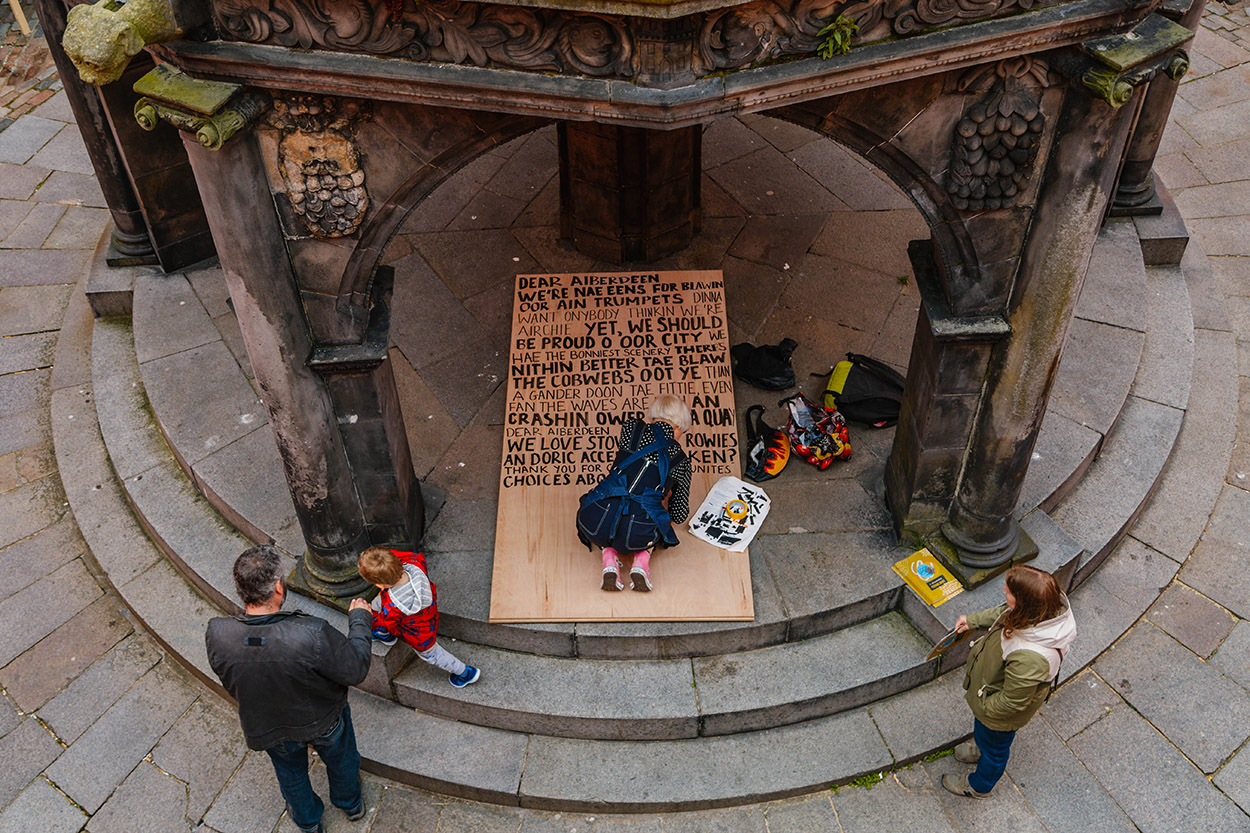 DEAR AIBERDEEN
WE'RE NAE EENS FOR BLAWIN
OOR AIN TRUMPETS DINNA
WANT ONYBODY THINKIN WE'RE
AIRCHIE YET, WE SHOULD
BE PROUD O OOR CITY WE
HAE THE BONNIEST SCENERY THERES
NITHIN BETTER TAE BLAW
THE COBWEBS OOT YE THAN
A GANDER DOON TAE FITTIE, EVEN
FAN THE WAVES ARE AN
CRASHIN OWER QUAY
DEAR AIBERDEEN
WE LOVE ROWIES
AN DORIC
THANK YOU FOR
CHOICES